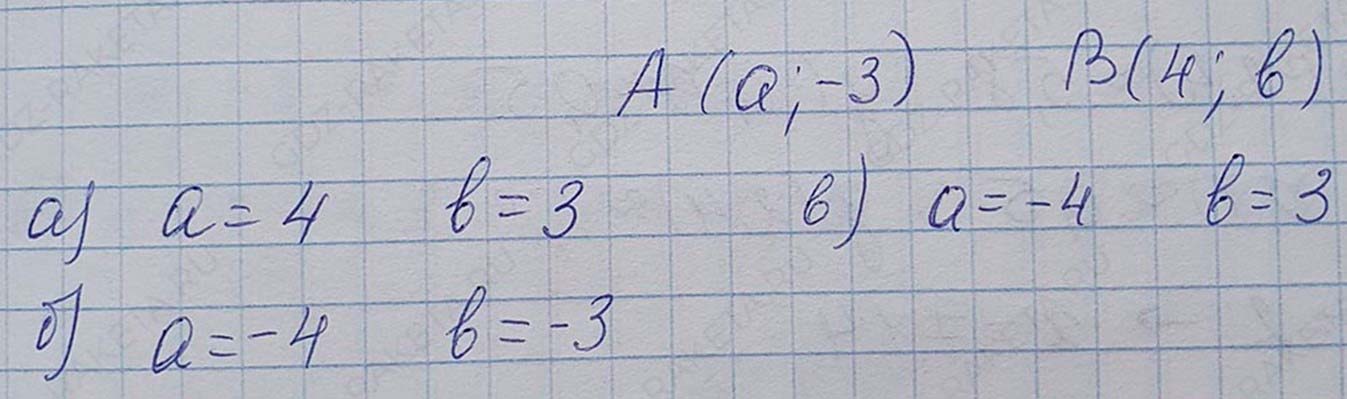 A (a; -3) B (4; b)
а) a = 4 b = 3 в) a = -4 b = 3
б) a = -4 b = -3